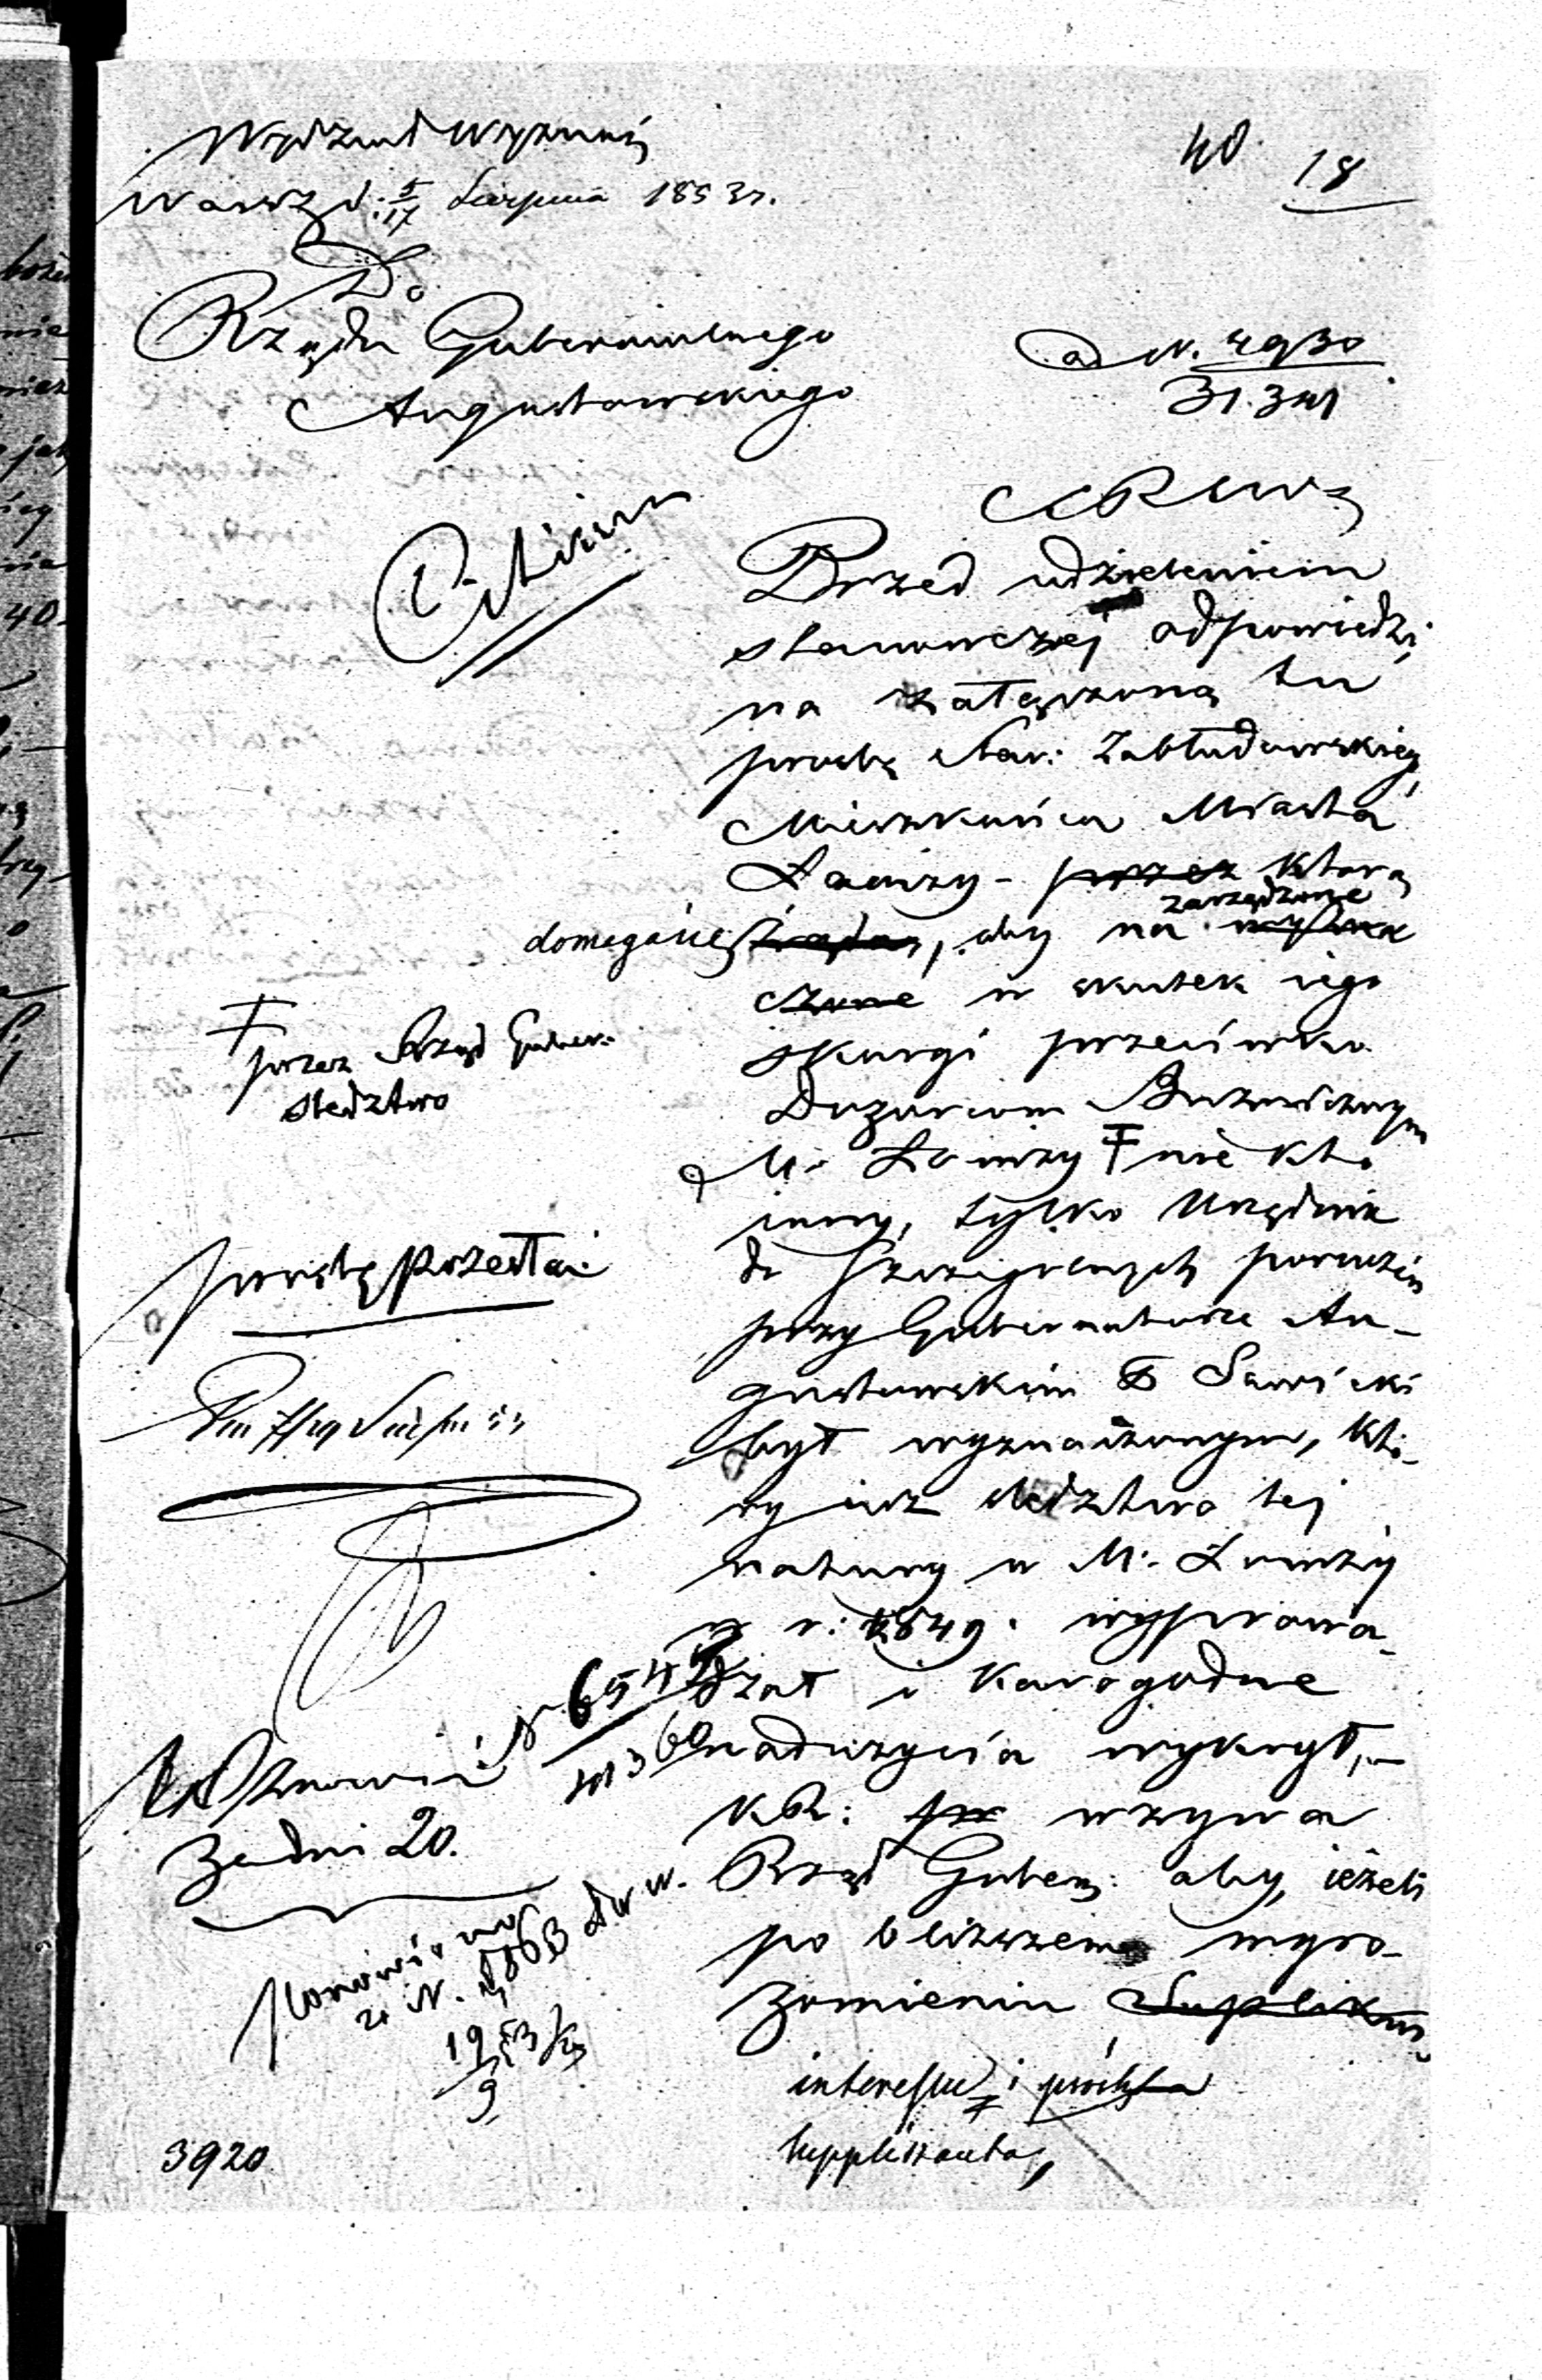 Wydział Wyznań
Warsz. d. 5/17 Sierpnia 1853 r.
40. 18
Do
Rządu Gubernialnego
Augustowskiego
ad N. 4930
31.341
Citissime
KRSWz
Przed udzieleniem
stanowczej odpowiedzi,
na załączoną tu
prośbę Zabłudowskiego,
Mieszkańca Miasta
Łomży - przez którą
zarządzone
domaga się żąda, aby na wyzna
czone w skutek iego
skargi przeciwko
Dozorcom Bożnicznym
M. Łomży Ŧ nie kto
inny, tylko Urzędnik
do szczególnych poruczeń
przy Gubernatorze Au-
gustowskim Sawicki
był wyznaczonym, któ-
ry iuż śledztwo tej
natury w M. Łomży
w r: 1849. wyprowa-
dzał i karogodne
nadużycia wykrył, -
KR: wzywa
Rząd Gubern: aby, ieżeli
po bliższem wyro-
zumieniu Suplikan
interessu i prośby
supplikanta,
Ŧ
przez Rząd Guber.
śledztwo
prośbę przesłać
N 6542
Wznowić
za dni 20.
ponowiono
3920